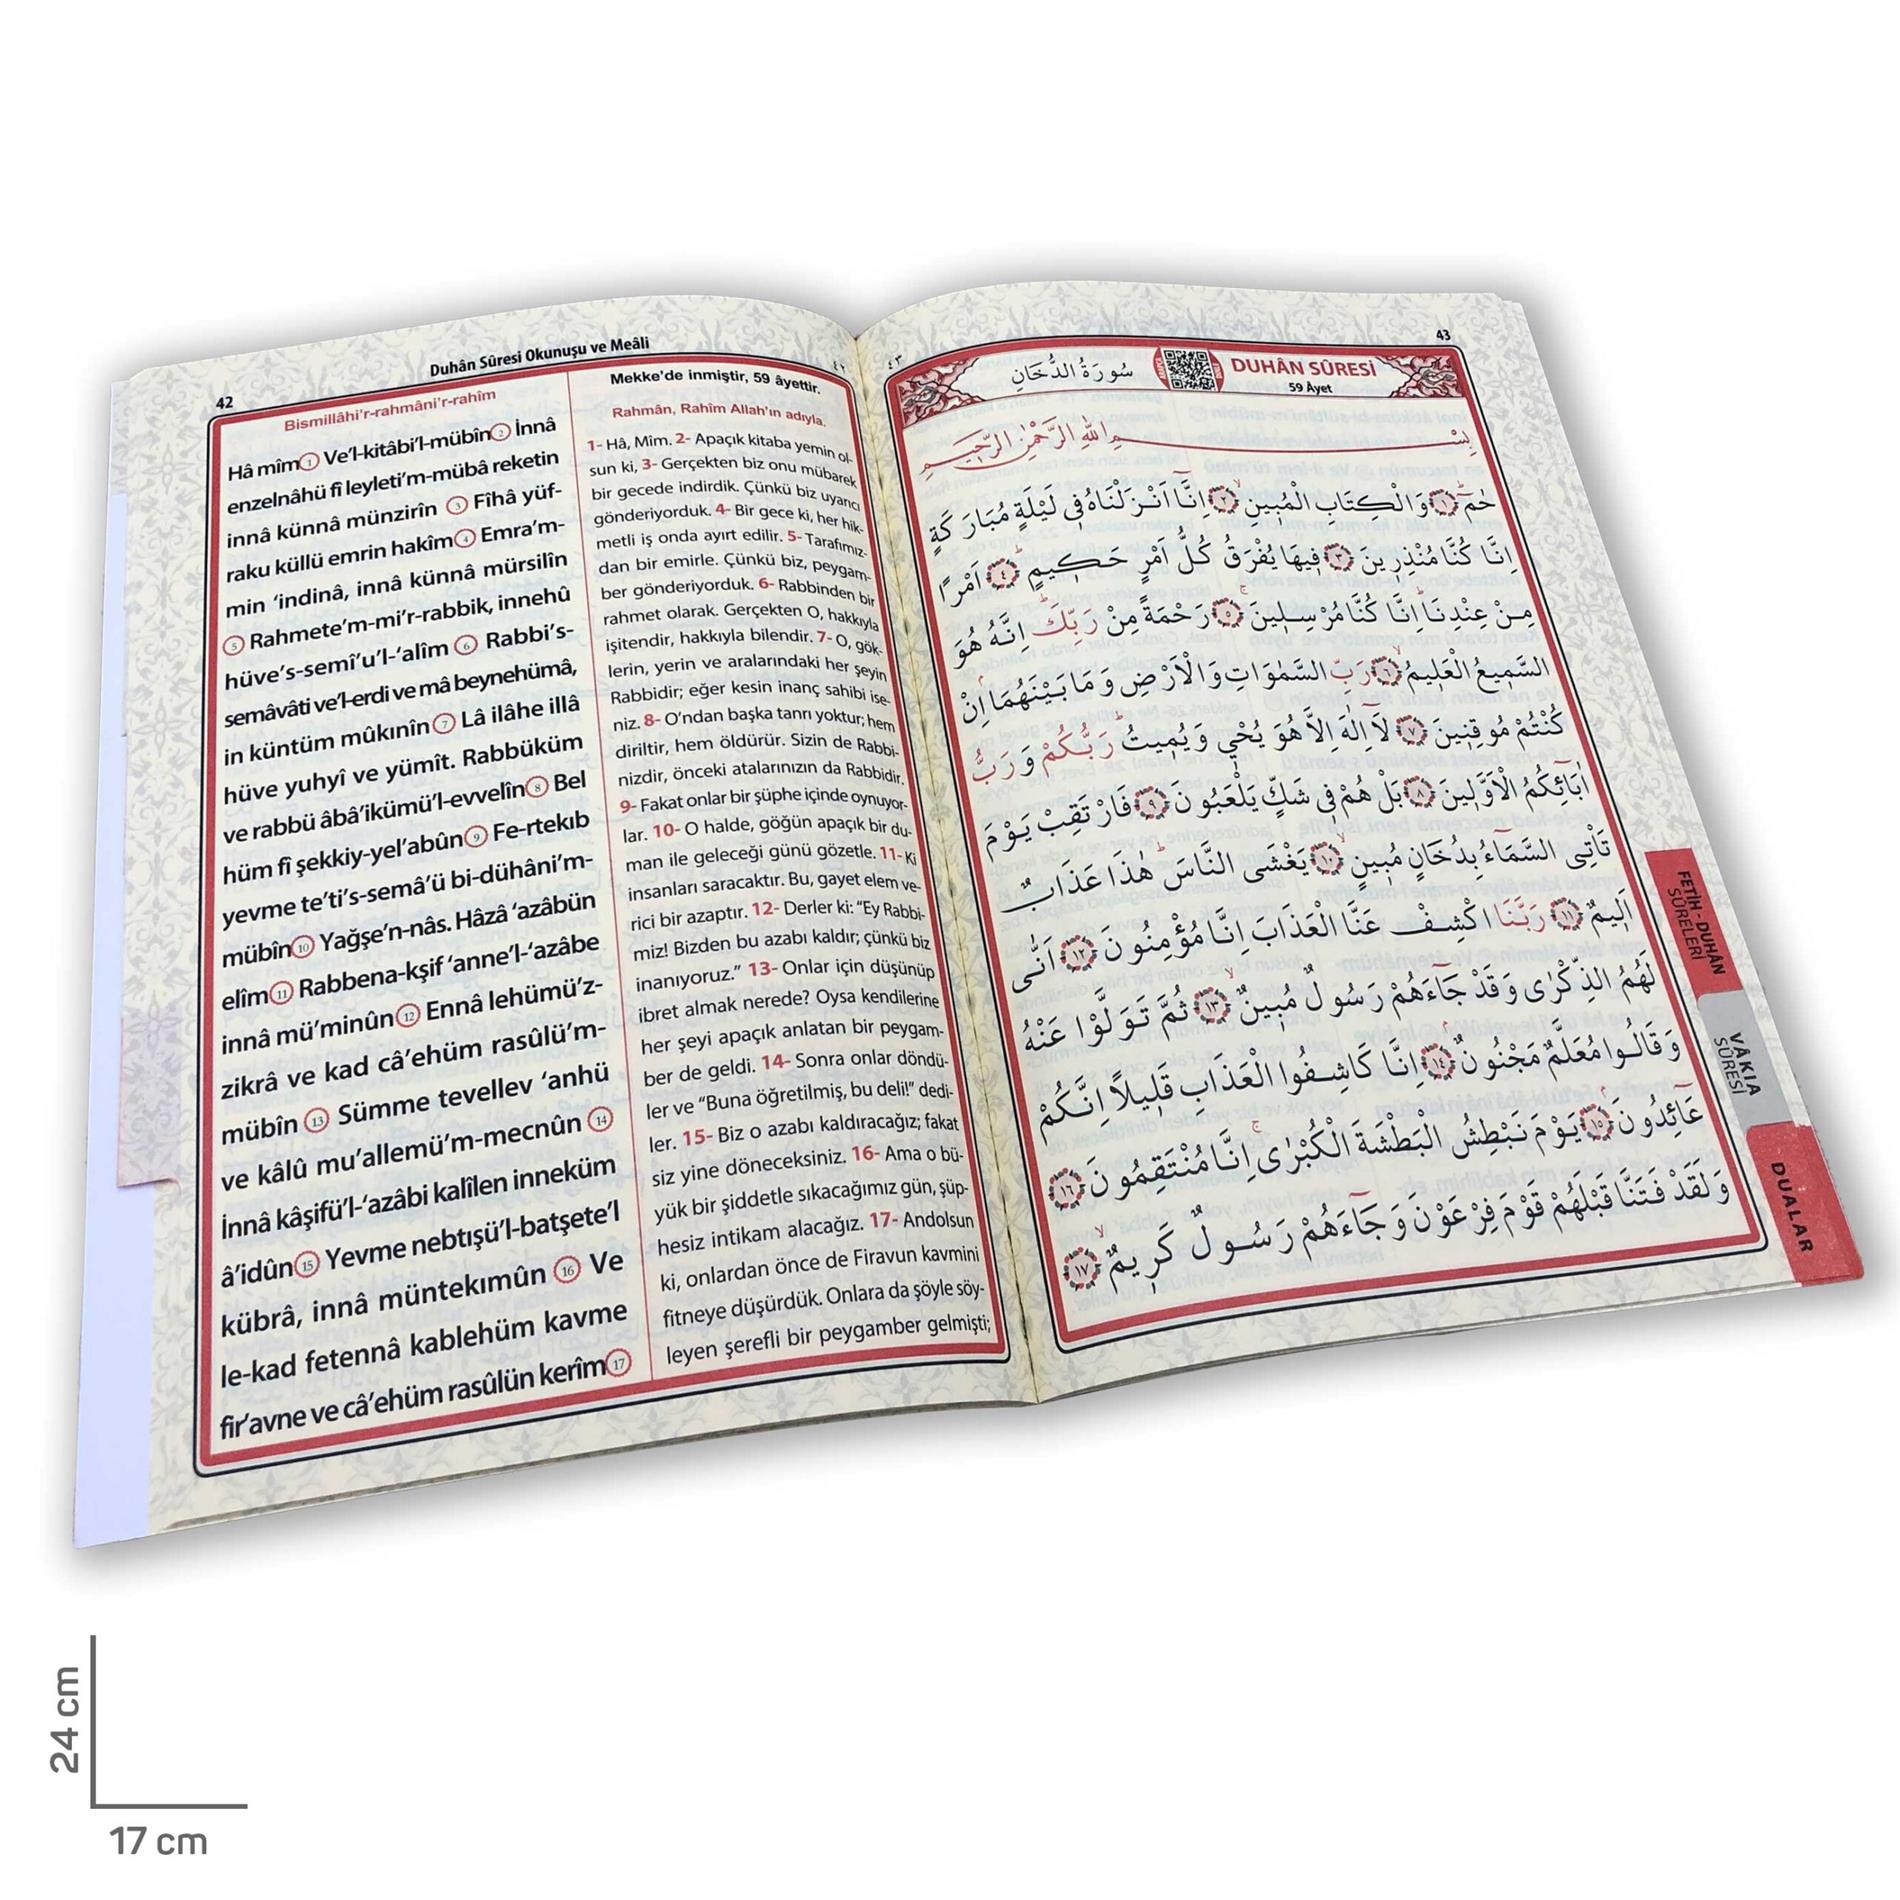 42
Duhân Sûresi Okunuşu ve Meâli
٤٢
Bismillâhi’r-rahmâni’r-rahîm
Hâ mîm 1 Ve’l-kitâbi’l-mübîn 2 İnnâ
enzelnâhü fî leyleti’m-mübâ reketin
innâ künnâ münzirîn 3 Fîhâ yüf-
raku küllü emrin hakîm 4 Emra’m-
min ‘indinâ, innâ künnâ mürsilîn
5 Rahmete’m-mi’r-rabbik, innehû
hüve’s-semî’u’l-‘alîm 6 Rabbi’s-
semâvâti ve’l-erdi ve mâ beynehümâ,
in küntüm mûkınîn 7 Lâ ilâhe illâ
hüve yuhyî ve yümît. Rabbüküm
ve rabbü âbâ’ikümü’l-evvelîn 8 Bel
hüm fî şekkiy-yel’abûn 9 Fe-rtekıb
yevme te’ti’s-semâ’ü bi-dühâni’m-
mübîn 10 Yağşe’n-nâs. Hâzâ ‘azâbün
elîm 11 Rabbena-kşif ‘anne’l-‘azâbe
innâ mü’minûn 12 Ennâ lehümü’z-
zikrâ ve kad câ’ehüm rasûlü’m-
mübîn 13 Sümme tevellev ‘anhü
ve kâlû mu’allemü’m-mecnûn 14
İnnâ kâşifü’l-‘azâbi kalîlen inneküm
â’idûn 15 Yevme nebtışü’l-batşete’l
kübrâ, innâ müntekımûn 16 Ve
le-kad fetennâ kablehüm kavme
fir’avne ve câ’ehüm rasûlün kerîm 17
Mekke’de inmiştir, 59 âyettir.
Rahmân, Rahîm Allah’ın adıyla.
1- Hâ, Mîm. 2- Apaçık kitaba yemin ol-
sun ki, 3- Gerçekten biz onu mübarek
bir gecede indirdik. Çünkü biz uyarıcı
gönderiyorduk. 4- Bir gece ki, her hik-
metli iş onda ayırt edilir. 5- Tarafımız-
dan bir emirle. Çünkü biz, peygam-
ber gönderiyorduk. 6- Rabbinden bir
rahmet olarak. Gerçekten O, hakkıyla
işitendir, hakkıyla bilendir. 7- O, gök-
lerin, yerin ve aralarındaki her şeyin
Rabbidir; eğer kesin inanç sahibi ise-
niz. 8- O’ndan başka tanrı yoktur; hem
diriltir, hem öldürür. Sizin de Rabbi-
nizdir, önceki atalarınızın da Rabbidir.
9- Fakat onlar bir şüphe içinde oynuyor-
lar. 10- O halde, göğün apaçık bir du-
man ile geleceği günü gözetle. 11- Ki
insanları saracaktır. Bu, gayet elem ve-
rici bir azaptır. 12- Derler ki: “Ey Rabbi-
miz! Bizden bu azabı kaldır; çünkü biz
inanıyoruz.” 13- Onlar için düşünüp
ibret almak nerede? Oysa kendilerine
her şeyi apaçık anlatan bir peygam-
ber de geldi. 14- Sonra onlar döndü-
ler ve “Buna öğretilmiş, bu deli!” dedi-
ler. 15- Biz o azabı kaldıracağız; fakat
siz yine döneceksiniz. 16- Ama o bü-
yük bir şiddetle sıkacağımız gün, şüp-
hesiz intikam alacağız. 17- Andolsun
ki, onlardan önce de Firavun kavmini
fitneye düşürdük. Onlara da şöyle söy-
leyen şerefli bir peygamber gelmişti;
٤٣
43
سُورَةُ الدُّخَانِ
DUHÂN SÛRESİ
59 Âyet
بِسْمِ اللهِ الرَّحْمٰنِ الرَّحِيمِ
حٰمٓ ١ وَالْكِتَابِ الْمُبِينِ ٢ اِنَّٓا اَنْزَلْنَاهُ فِي لَيْلَةٍ مُبَارَكَةٍ
اِنَّا كُنَّا مُنْذِرِينَ ٣ فِيهَا يُفْرَقُ كُلُّ اَمْرٍ حَكِيمٍ ٤ اَمْرًا
مِنْ عِنْدِنَا اِنَّا كُنَّا مُرْسِلِينَ ٥ رَحْمَةً مِنْ رَبِّكَ اِنَّهُ هُوَ
السَّمِيعُ الْعَلِيمُ ٦ رَبِّ السَّمٰوَاتِ وَالْاَرْضِ وَمَا بَيْنَهُمَا اِنْ
كُنْتُمْ مُوقِنِينَ ٧ لَٓا اِلٰهَ اِلَّا هُوَ يُحْيِي وَيُمِيتُ رَبُّكُمْ وَرَبُّ
اٰبَٓائِكُمُ الْاَوَّلِينَ ٨ بَلْ هُمْ فِي شَكٍّ يَلْعَبُونَ ٩ فَارْتَقِبْ يَوْمَ
تَاْتِي السَّمَٓاءُ بِدُخَانٍ مُبِينٍ ١٠ يَغْشَى النَّاسَ هٰذَا عَذَابٌ
اَلِيمٌ ١١ رَبَّنَا اكْشِفْ عَنَّا الْعَذَابَ اِنَّا مُؤْمِنُونَ ١٢ اَنّٰى
لَهُمُ الذِّكْرٰى وَقَدْ جَٓاءَهُمْ رَسُولٌ مُبِينٌ ١٣ ثُمَّ تَوَلَّوْا عَنْهُ
وَقَالُوا مُعَلَّمٌ مَجْنُونٌ ١٤ اِنَّا كَاشِفُوا الْعَذَابِ قَلِيلًا اِنَّكُمْ
عَٓائِدُونَ ١٥ يَوْمَ نَبْطِشُ الْبَطْشَةَ الْكُبْرٰى اِنَّا مُنْتَقِمُونَ ١٦
وَلَقَدْ فَتَنَّا قَبْلَهُمْ قَوْمَ فِرْعَوْنَ وَجَٓاءَهُمْ رَسُولٌ كَرِيمٌ ١٧
FETİH - DUHÂN
SÛRELERİ
VÂKIA
SÛRESİ
DUALAR
24 cm
17 cm